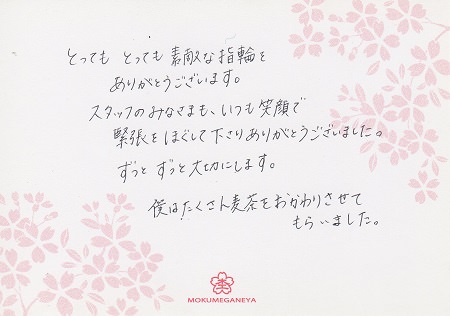 とっても とっても素敵な指輪を
ありがとうございます。
スタッフのみなさまも、いつも笑顔で
緊張をほぐして下さりありがとうございました。
ずっと ずっと大切にします。
僕はたくさん麦茶をおかわりさせて
もらいました。
MOKUMEGANEYA